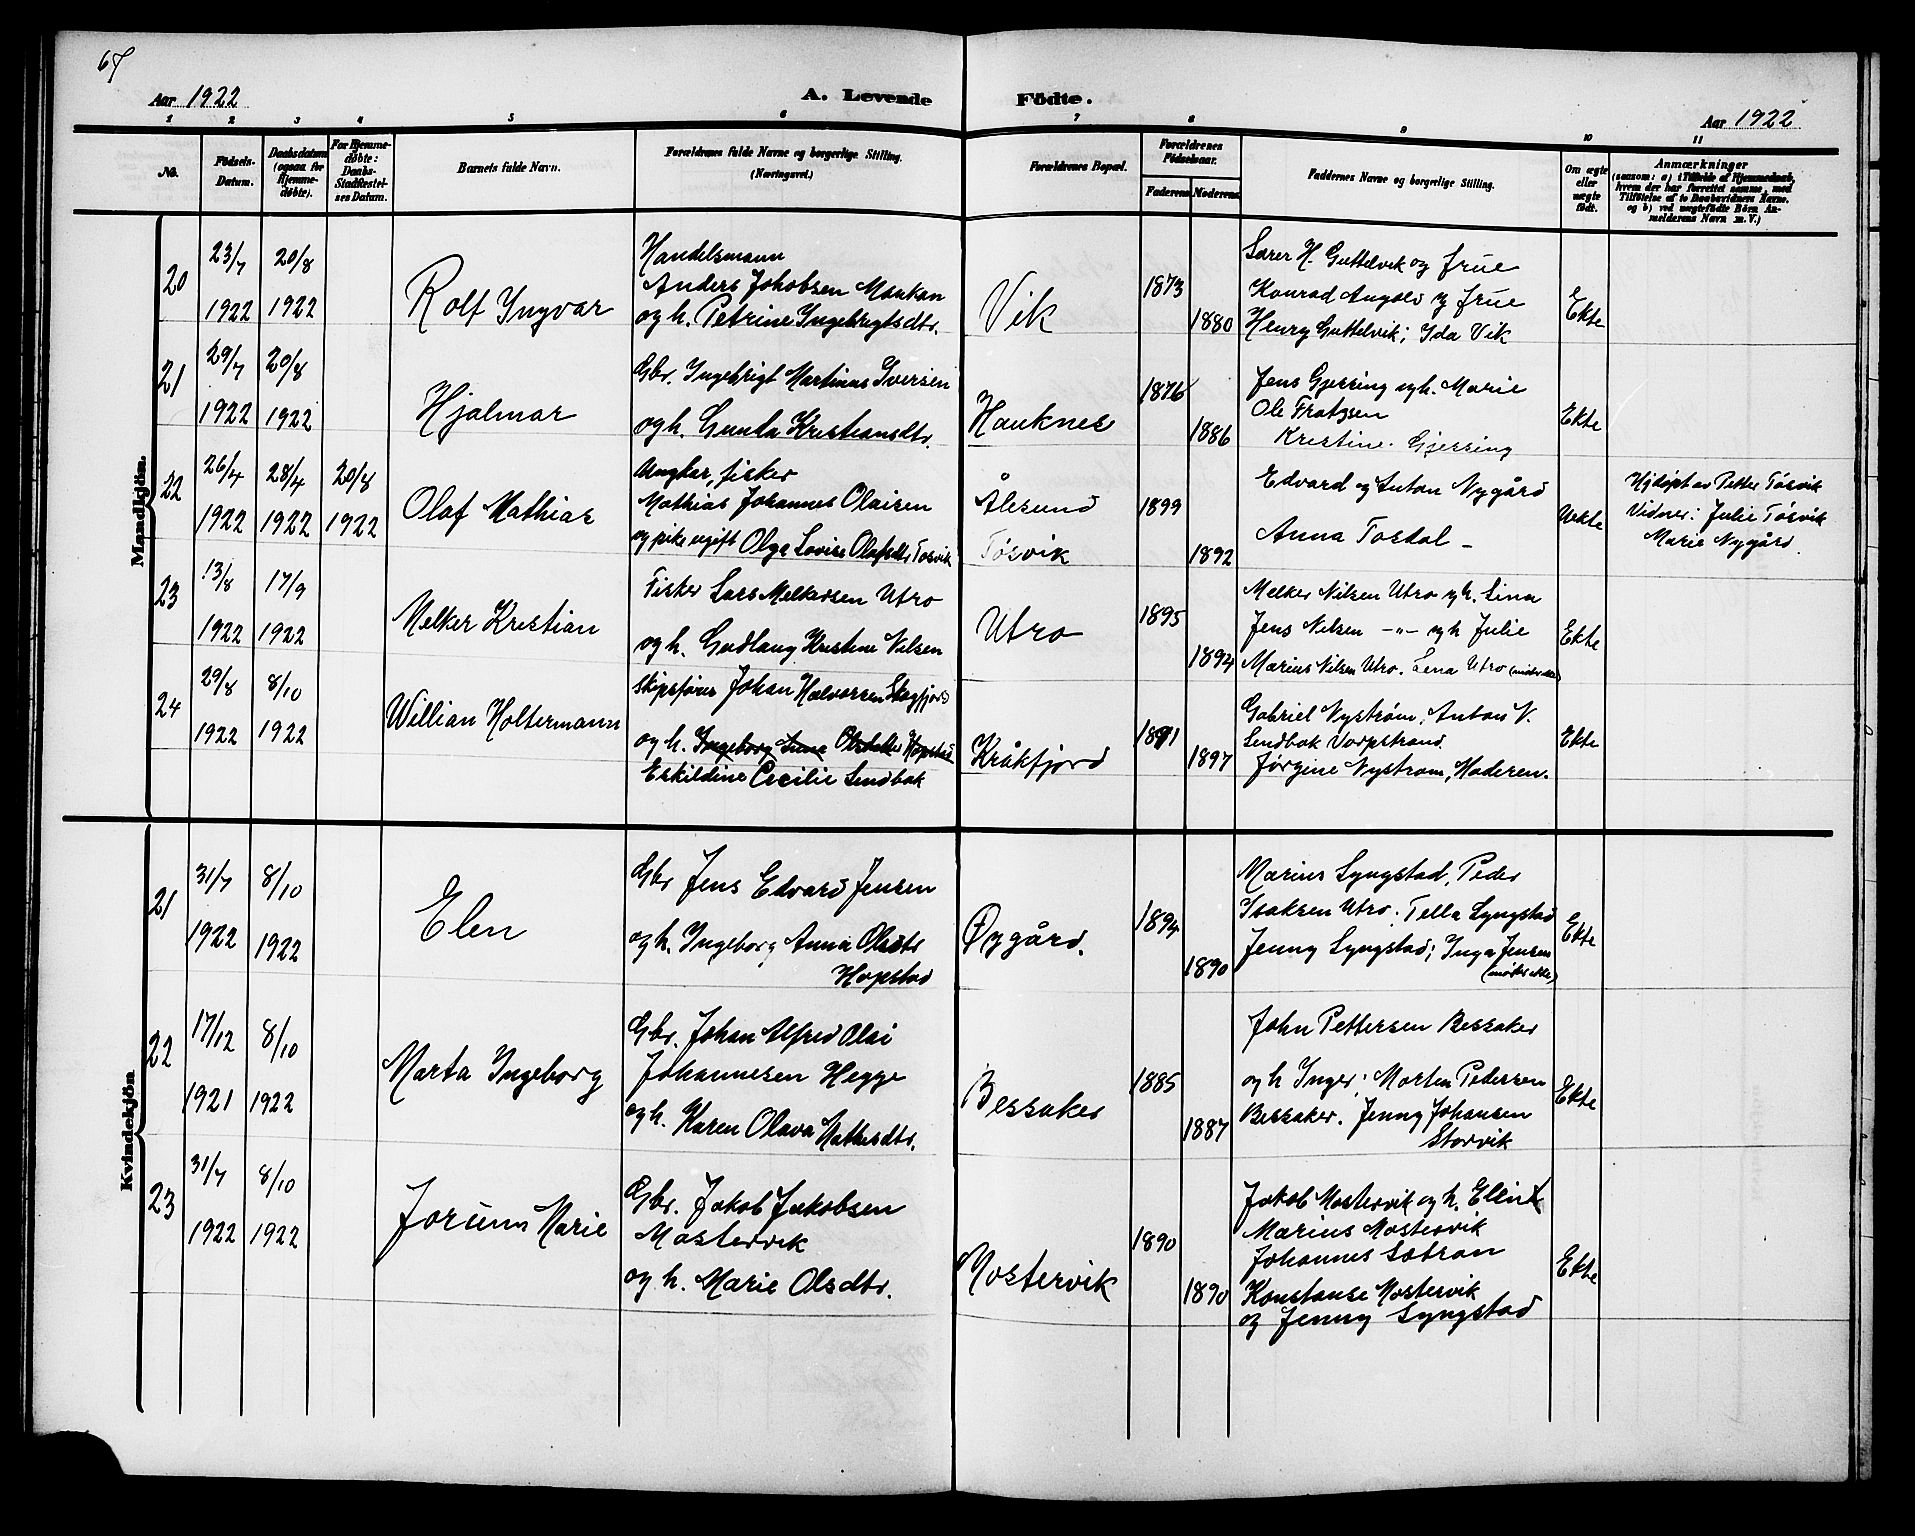 67
Aar 1922
A. Levende Födte.
Aar 1922
1 2 3 4 5 6 7 8 9 10 11
No.
Födsels-
Datum.
Daabsdatum
(ogsaa for
Hjemme-
døbte).
For Hjemme-
døbte:
Daabs-
Stadfæstel-
ses Datum.
Barnets fulde Navn.
Forældrenes fulde Navne og borgerlige Stilling.
(Næringsvei.)
Forældrenes Bopæl.
Forældrenes
Födselsaar.
Faderens Moderens
Faddernes Navne og borgerlige Stilling.
Om ægte
eller
uægte
født.
Anmærkninger
(saasom: a) i Tilfælde af Hjemmedaab,
hvem der har forrettet samme, med
Tilföielse af to Daabsvidners Navne.
og b) ved uægtefödte Börn An-
melderens Navn m. V.)
Mandkjön.
20
23/7
1922
20/8
1922
Rolf Ingvar
Handelsmann
Anders Jakobsen Monkan
og h. Petrine Ingebrigtsdtr.
Vik
1873
1880
Lærer H. Guttelvik og frue
Konrad Angolv og frue
Henry Guttelvik; Ida Vik
Ekte
21
29/7
1922
20/8
1922
Hjalmar
Gbr. Ingebrigt Martinus Iversen
og h. Gunda Kristiansdtr.
Hauknes
1876
1886
Jens Gjersing og h. Marie
Ole Fratzsen
Kristine Gjersing
Ekte
22
26/4
1922
28/4
1922
20/8
1922
Olaf Mathias
Ungkar, fisker
Mathias Johannes Olaisen
og pike ugift Olga Lovise Olafsdtr Tøsvik
Ålesund
Tøsvik
1899
1892
Edvard og Anton Nygård
Anna Tosdal –
Uekte
Hjdøpt av Petter Tøsvik
Vidner: Julie Tøsvik
Marie Nygård.
23
13/8
1922
17/9
1922
Melker Kristian
Fisker Lars Melkersen Utro
og h. Gudlaug Kristine Nilsen
Utro
1895
1894
Melker Nilsen Utro og h. Lina
Jens Nilsen –"– og h Julie
Marius Nilsen Utro. Lena Utro (møtte ikke)
Ekte
24
29/8
1922
8/10
1922
Willian Holtermann
Skipsfører Johan Halvorsen Skogfjord
og h. Ingeborg Anna Olsdatter Hopstad
Eskildine Cecilie Sendbak
Kråkfjord
1891
1897
Gabriel Nystrøm, Anton N.
Sendbak Vorpstrand.
Jørgine Nystrøm, Moderen.
Ekte
Kvindekjön
21
31/7
1922
8/10
1922
Elen
Gbr Jens Edvard Jensen
og h. Ingeborg Anna Olsdtr
Hopstad
Øygård.
1894
1890
Marius Lyngstad, Peder
Isaksen Utro. Tella Lyngstad
Jenny Lyngstad; Inga Jensen
(møtte ikke)
Ekte
22
17/12
1921
8/10
1922
Marta Ingeborg
Gbr. Johan Alfred Olai
Johannesen Hegge
og h. Karen Olava Mathisdtr.
Bessaker
1885
1887
John Pettersen Bessaker
og h Inger; Morten Pedersen
Bessaker. Jenny Johansen
Storvik
Ekte
23
31/7
1922
8/10
1922
Jorunn Marie
Gbr. Jakob Jakobsen
Mostervik
og h. Marie Olsdtr.
Mostervik
1890
1890
Jakob Mostervik og h. Elen
Marius Mostervik
Johannes Sætran
Konstanse Mostervik
og Jenny Lyngstad
Ekte